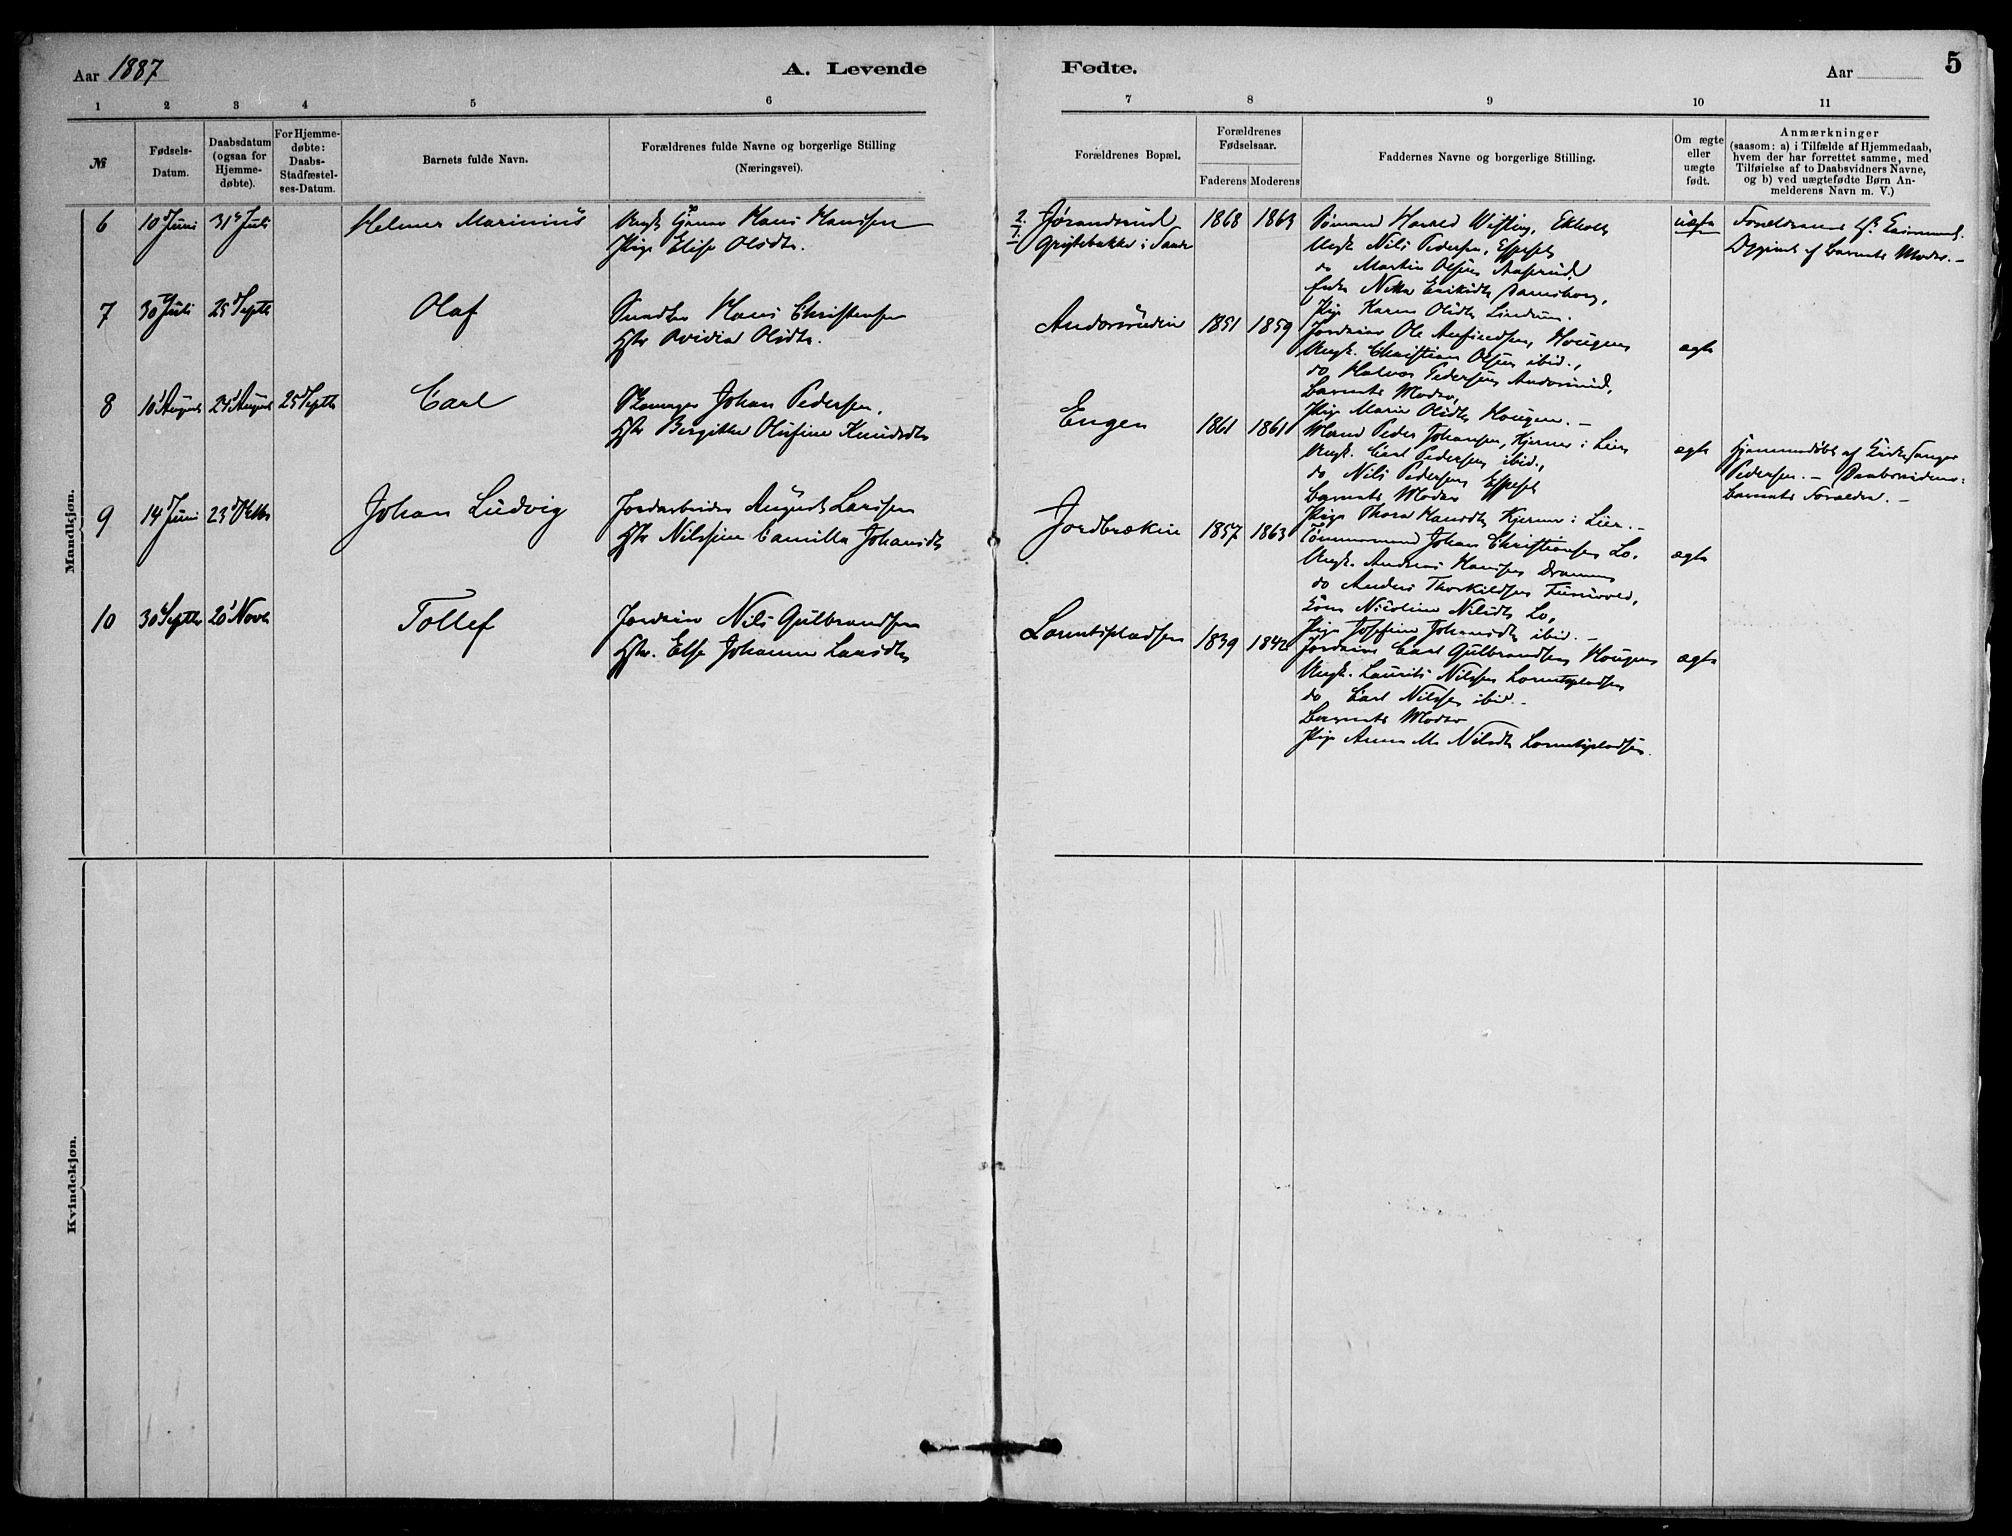 Aar 1887
A. Levende
Fødte.
Aar
5
1 2 3 4 5 6 7 8 9 10 11
№
Fødsels-
Datum.
Daabsdatum
(ogsaa for
Hjemme-
døbte).
For Hjemme-
døbte:
Daabs-
Stadfæstel-
ses-Datum.
Barnets fulde Navn.
Forældrenes fulde Navne og borgerlige Stilling
(Næringsvei).
Forældrenes Bopæl.
Forældrenes
Fødselsaar.
Faderens Moderens
Faddernes Navne og borgerlige Stilling.
Om ægte
eller
uægte
født.
Anmærkninger
(saasom: a) i Tilfælde af Hjemmedaab,
hvem der har forrettet samme, med
Tilføielse af to Daabsvidners Navne,
og b) ved uægtefødte Børn An-
melderens Navn m. V.)
Mandkjøn.
6 10 Juni 31 Juli
Helmer Marinius
Ungk Hans Hanssen
Pige Elise Olsdtr.
Jørandsrud
i Sande
1868 1863
Sømand Harald Wisting, Ekholt
Ungk Nils Pedersen, Espeset
do Martin Olsen Aaserud
Enke Netta Eriksdtr
Pige Karen Olsdtr Lindrum.
uægte
Forældrene
af Barnets Moder. –
7 30 Juli 25 Septb
Olaf
Hans Christensen
Hstr Olsdtr.
Andorsrudeie
1851 1859
Ole Anfindsen, Hougen
Ungk. Christian Olsen ibid.,
do Halvor Pedersen Andorsrud,
Barnets Moder,
Pige Marie Olsdtr Hougen. –
ægte
8 10 August 24 August 25 Septb
Carl
Skomager Johan Pedersen,
Hstr Birgitte Olufine Knudsdtr
Engen
1861 1861
Mand Peder Johansen, Kjerner i Lier
Ungk. Carl Pedersen ibid.,
do Nils Pedersen Espeset
Barnets Moder
Pige Thora Hansdtr Kjerner i Lier. –
ægte
Hjemmedøbt af Kirkesanger
Pedersen. –
Barnets Forældre. –
9 14 Juni 23 Oktb
Johan Ludvig
Jordarbeider August Larssen
Hstr Nilssine Camilla Johansdtr
Jordbrækeie
1857 1863
Tømmermand Johan Christiansen Lo,
Ungk. Andreas Hansen Drammen
do Anders Thorkildsen
Nicoline Nilsdtr Lo,
Pige Josefine Johansdtr ibid. –
ægte
10 30 Septbr 20 Novb
Tollef
Nils Gulbrandsen
Hstr. Else Johanne Larsdtr
Lorentspladsen
1839 1842
Carl Gulbrandsen Hougen
Ungk. Laurits Nilssen Lorentspladsen
do Carl Nilssen ibid. –
Barnets Moder
Pige Anne M. Nilsdtr Lorentspladsen.
ægte
Kvindekjøn.